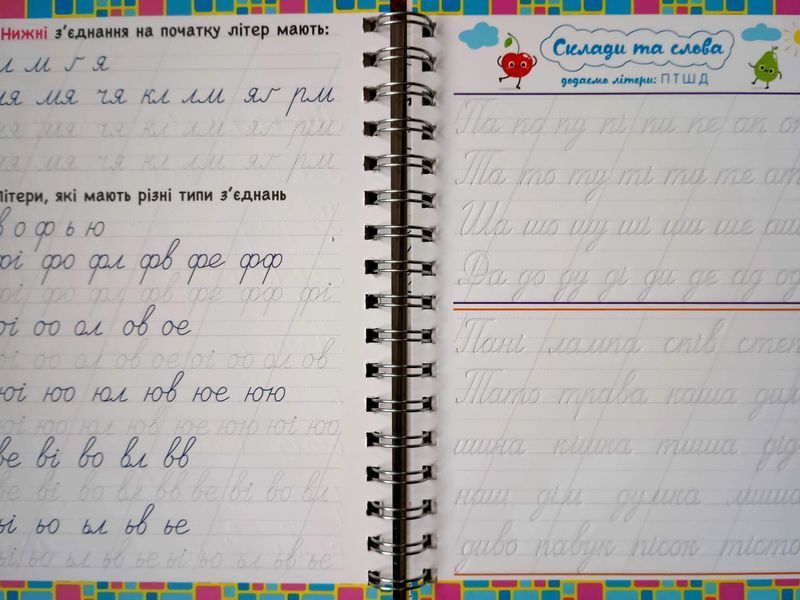 Нижні з'єднання на початку літер мають:
л м ґ я
ия мя чя кл лм яґ рм
ия мя чя кл лм яґ рм
ия мя чя кл лм яґ рм
Літери, які мають різні типи з'єднань
в о ф ь ю
фі фо фл фв фе фф
фі фо фл фв фе фф фі
оі оо ол ов ое
оі оо ол ов ое оі оо ол ов
юі юо юл юв юе юю
юі юо юл юв юе юю юі юо
ве ві во вл вв
ве ві во вл вв ве ві во вл
ьі ьо ьл ьв ье
ьі ьо ьл ьв ье ьі ьо ьл ьв ье
Склади та слова
додаємо літери: П Т Ш Д
Па по пу пі пи пе ап
Та то ту ті ти те ат
Ша шо шу ші ши ше аш
Да до ду ді ди де ад од
Пані лампа спів степ
Тато трава каша дим
шина кішка тиша дід
наш дім думка миша
диво павук пісок тісто